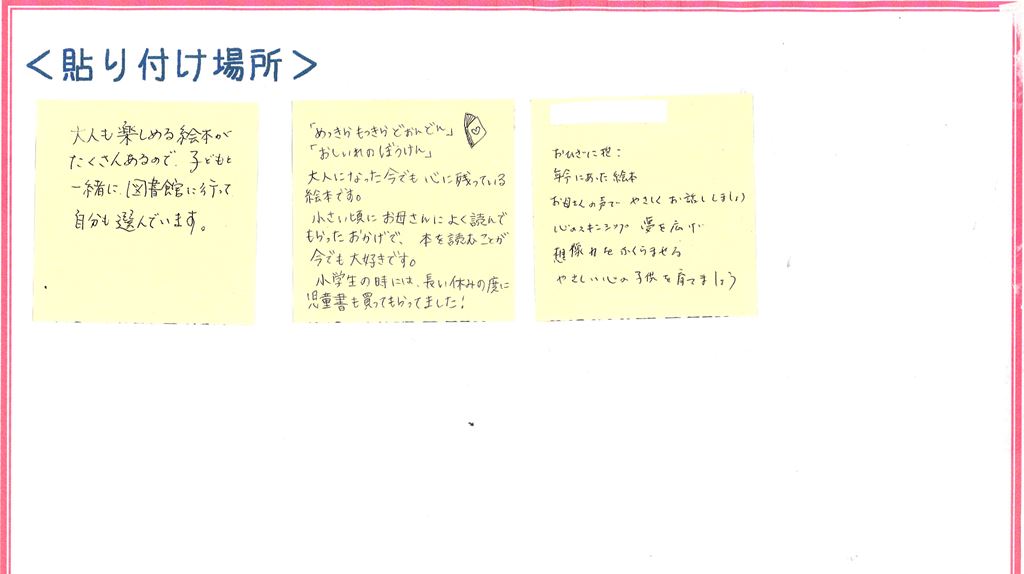 ＜貼り付け場所＞
大人も楽しめる絵本が
たくさんあるので、子どもと
一緒に、図書館に行って
自分も選んでいます。
「めっきらもっきらどおんどん」
「おしいれのぼうけん」
大人になった今でも心に残っている
絵本です。
小さい頃にお母さんによく読んで
もらったおかげで、本を読むことが
今でも大好きです。
小学生の時には、長い休みの度に
児童書も買ってもらってました!
おひざに抱:
年令にあった絵本
お母さんの声で やさしく お話ししましょう
心のスキンシップ 夢を広げ
想像力をふくらませる
やさしい心の子供を育てましょう